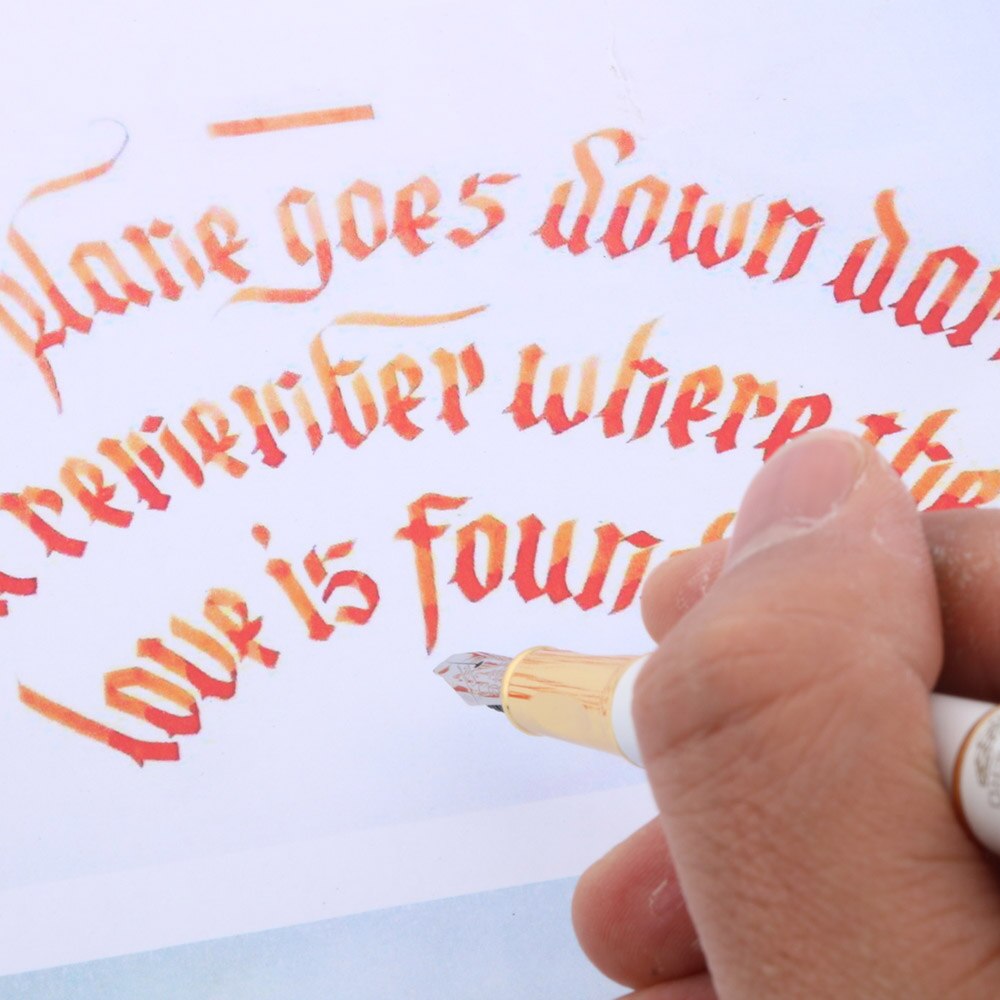 plane goes down dar
remember where the
love is foun